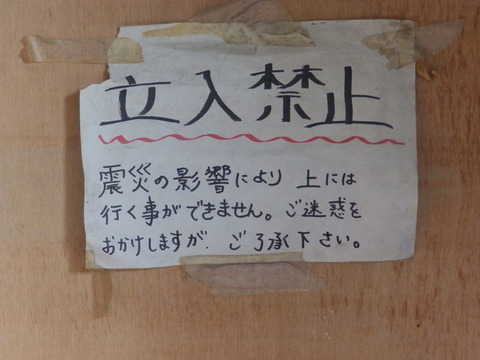 立入禁止
震災の影響により 上には
行く事ができません。ご迷惑を
おかけしますが、ご了承下さい。